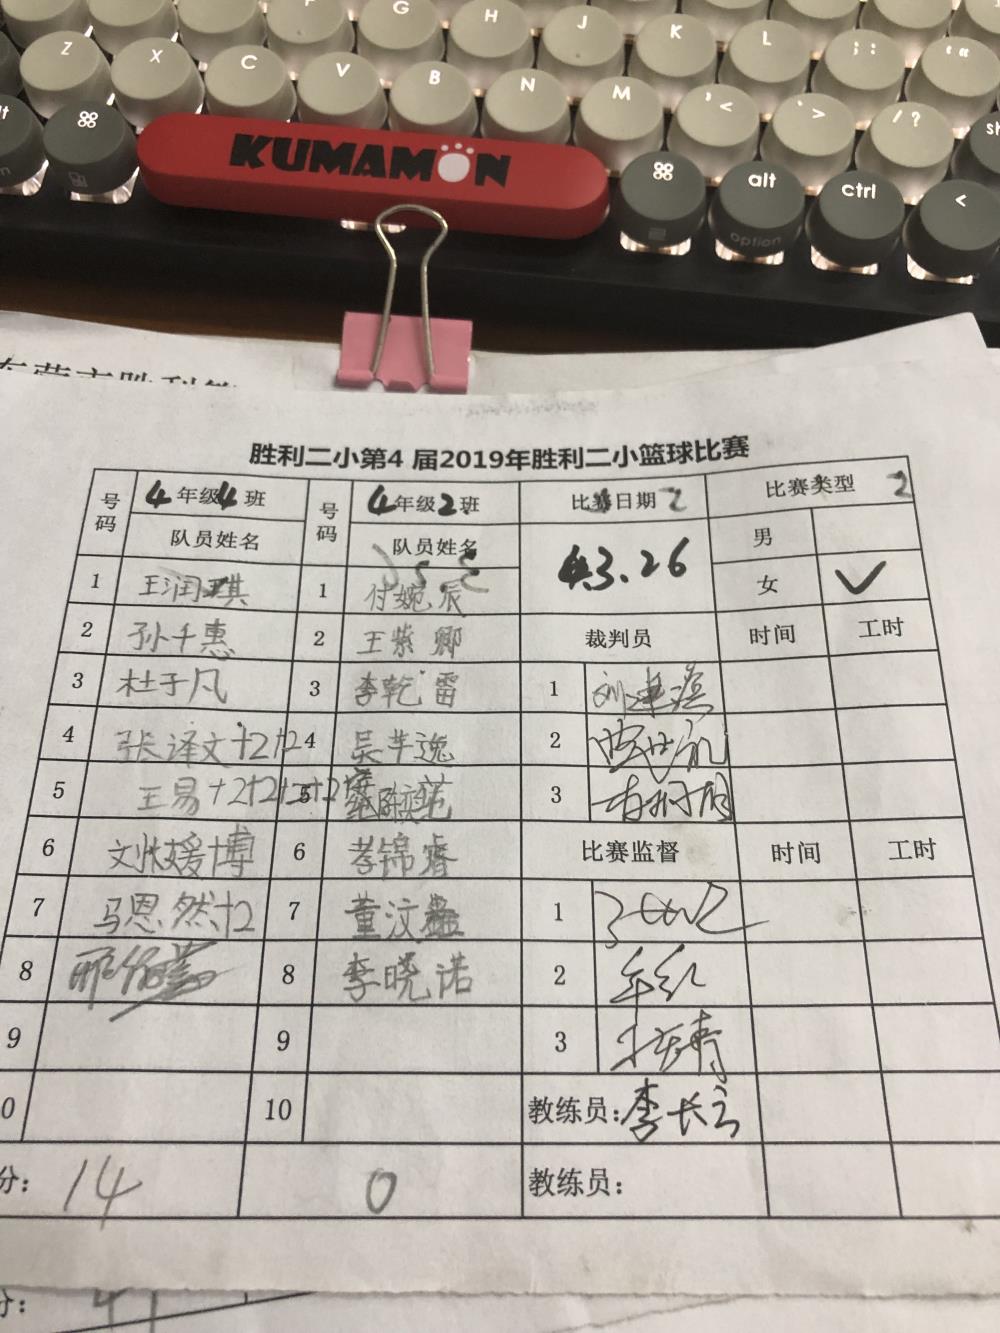 F G H J K L ; :
Z X C V B N M , < . > / ?
⌘ ⌘ alt ctrl <
option
KUMAMON
胜利二小第4 届2019年胜利二小篮球比赛
号码 4年级4班 号码 4年级2班 比赛日期 2 比赛类型 2
队员姓名 队员姓名 43.26 男
1 王润琪 1 付婉辰 女 ✓
2 孙千惠 2 王紫卿 裁判员 时间 工时
3 杜于凡 3 李乾雷 1
4 张泽文+2+2 4 吴芊逸 2
5 王易+2+2+2+2 5 3
6 6 比赛监督 时间 工时
7 马恩然+2 7 董汶 1
8 8 李晓诺 2
9 9 3
0 10 教练员:李长云
分: 14 0 教练员:
分: 41